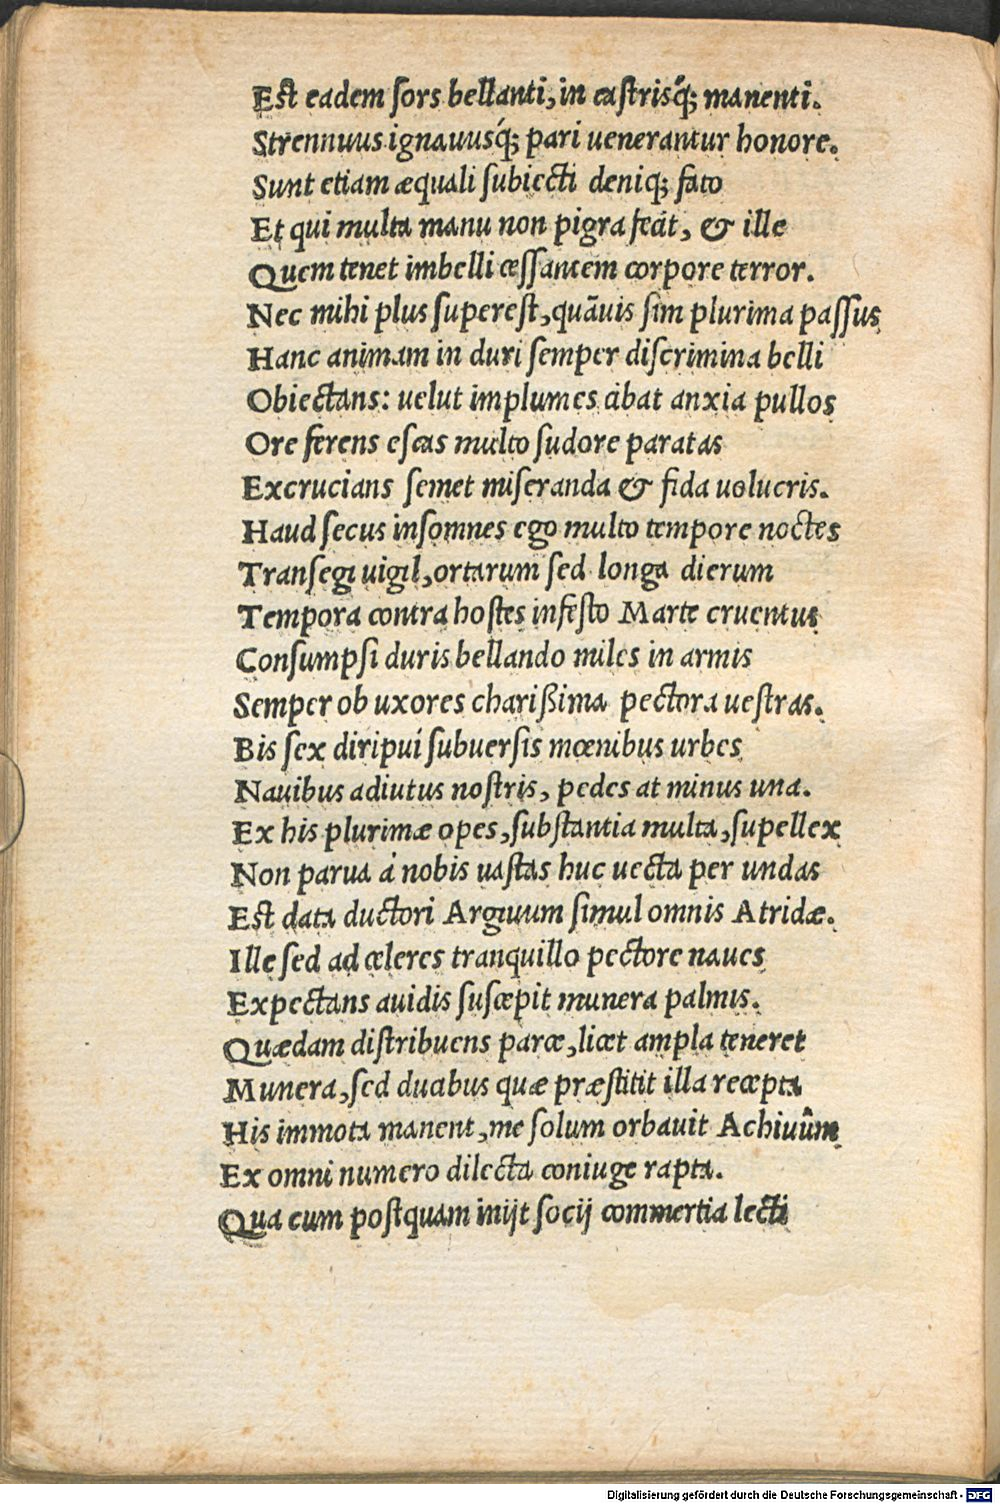 Eſt eadem ſors bellanti, in caſtrisq́; manenti.
Strennuus ignauusq́; pari uenerantur honore.
Sunt etiam æquali ſubiecti deniq; fato
Et qui multa manu non pigra fecit, & ille
Quem tenet imbelli ceſſantem corpore terror.
Nec mihi plus ſupereſt, quāuis ſim plurima paſſus
Hanc animam in duri ſemper diſcrimina belli
Obiectans: uelut implumes cibat anxia pullos
Ore ferens eſcas multo ſudore paratas
Excrucians ſemet miſeranda & fida uolucris.
Haud ſecus inſomnes ego multo tempore noctes
Tranſegi uigil, ortarum ſed longa dierum
Tempora contra hoſtes infeſto Marte cruentus
Conſumpſi duris bellando miles in armis
Semper ob uxores charißima pectora ueſtras.
Bis ſex diripui ſubuerſis mœnibus urbes
Nauibus adiutus noſtris, pedes at minus una.
Ex his plurimæ opes, ſubſtantia multa, ſupellex
Non parua á nobis uaſtas huc uecta per undas
Eſt data ductori Argiuum ſimul omnis Atridæ.
Ille ſed ad celeres tranquillo pectore naues
Expectans auidis ſuſcepit munera palmis.
Quædam diſtribuens parce, licet ampla teneret
Munera, ſed duabus quæ præſtitit illa recepta
His immota manent, me ſolum orbauit Achiuûm
Ex omni numero dilecta coniuge rapta.
Qua cum poſtquam inijt ſocij commertia lecti
Digitalisierung gefördert durch die Deutsche Forschungsgemeinschaft - DFG